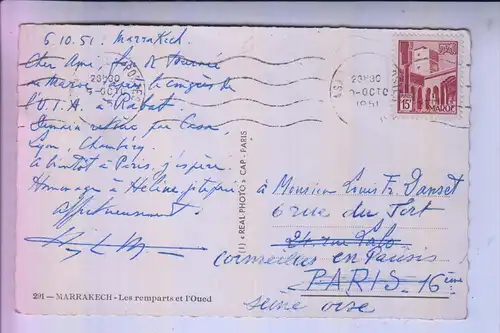 6.10.51. Marrakech.
Cher Ami, fin de Tournée
au Maroc, après le congrès de
l'U.I.A. à Rabat.
Demain retour par Casa,
Lyon, Chambéry.
A bientôt à Paris, j'espère.
Hommage à Hélène
affectueusement
291 — MARRAKECH - Les remparts et l'Oued
(1) « REAL-PHOTO » CAP - PARIS
23H30
OCTO
1951
15F
MAROC
à Monsieur Louis Fr. Danset
6 rue du Fort
24 rue
Cormeilles en Parisis
PARIS - 16ème
Seine Oise